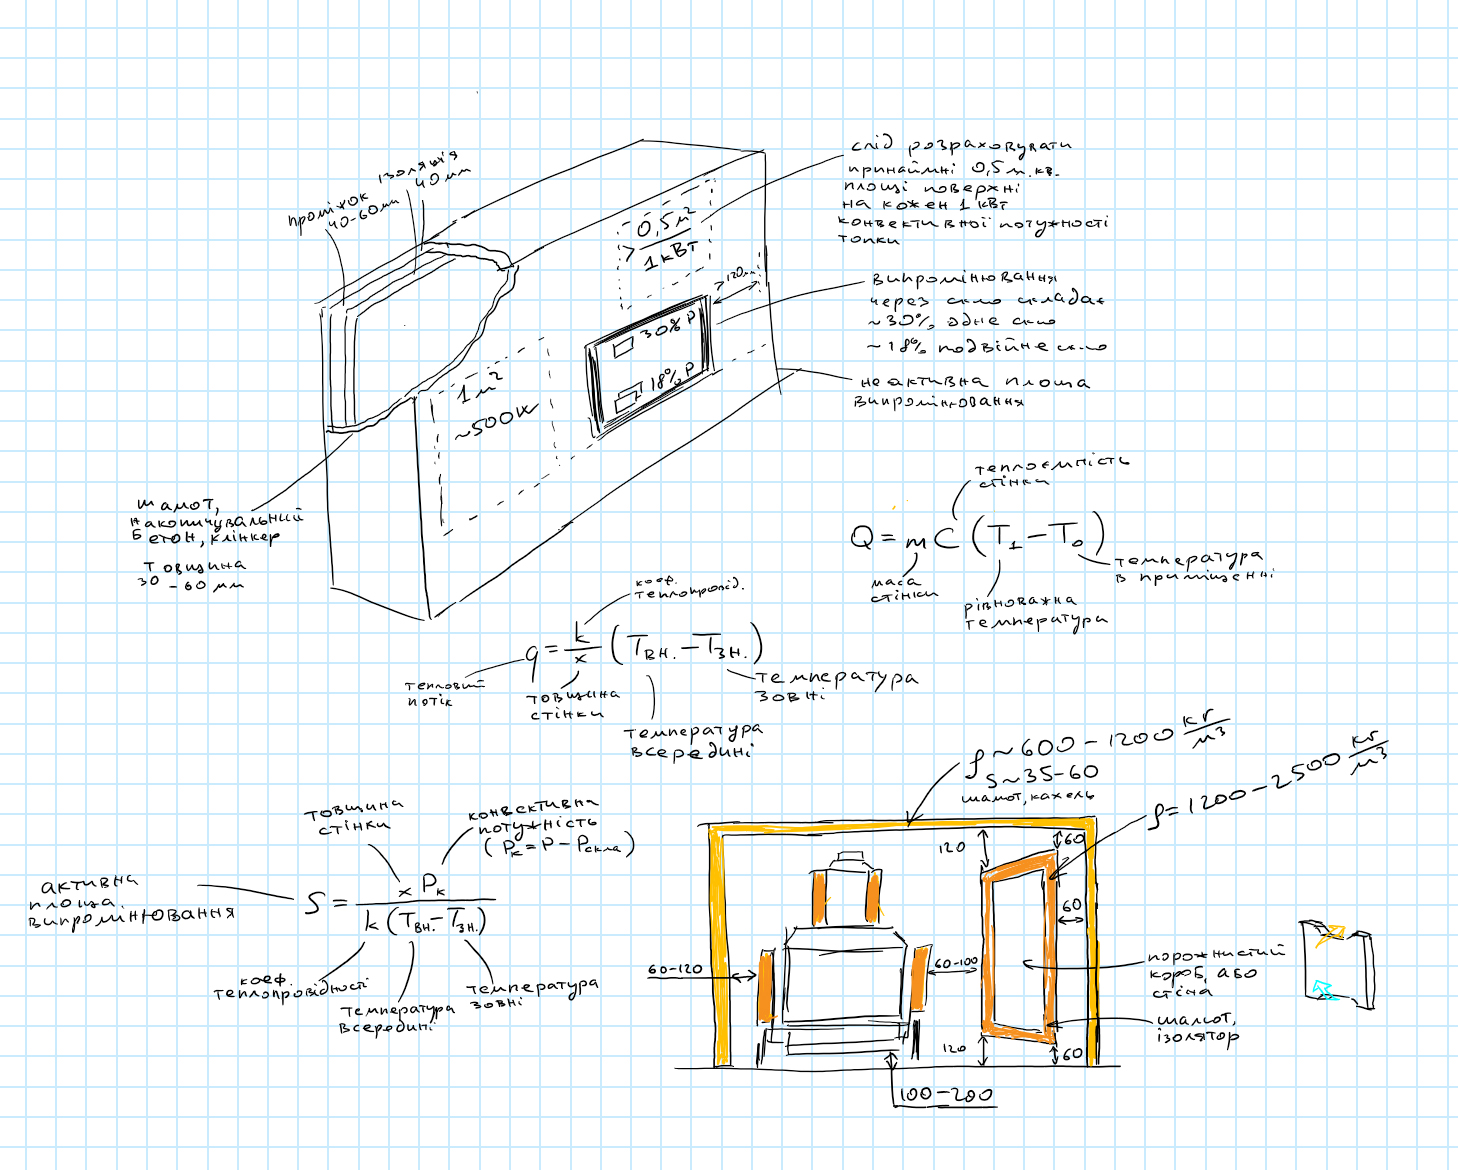 проміжок
40-60мм
ізоляція
40мм
слід розраховувати
принаймні 0,5м.кв.
площі поверхні
на кожен 1 кВт
конвективної потужності
топки
> 0,5м²
1кВт
>120мм
випромінювання
через скло складає
~30% одне скло
~18% подвійне скло
30% P
18% P
неактивна площа
випромінювання
1м²
~500W
шамот,
накопичувальний
бетон, клінкер
товщина
30-60мм
теплоємність
стінки
Q = mC (T₁ - T₀)
маса
стінки
рівноважна
температура
температура
в приміщенні
коеф.
теплопровід.
q = k/x (Tвн. - Tзн.)
тепловий
потік
товщина
стінки
температура
зовні
температура
всередині
товщина
стінки
конвективна
потужність
(Pк = P - Pскла)
активна
площа
випромінювання
S = x Pк / k (Tвн. - Tзн.)
коеф.
теплопровідності
температура
всередині
температура
зовні
ρ ~ 600-1200 кг/м³
s ~ 35-60
шамот, кахель
ρ = 1200-2500 кг/м³
120
60
60
60-120
60-100
порожнистий
короб, або
стіна
шамот,
ізолятор
120
60
100-200